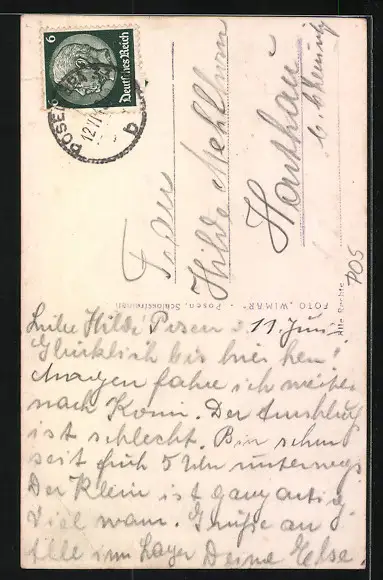 6
Deutsches Reich
POSEN
12.VI
b
Frau
Hilde Mehlhorn
Harthau
b. Chemnitz
FOTO "WIMAR" - Posen, Schlossfreiheit
Alle Rechte
POS
Liebe Hilde! Posen d 11. Juni
Glücklich bis hier her!
Morgen fahre ich weiter
nach Konin. Der Anschluß
ist schlecht. Bin schon
seit früh 5 Uhr unterwegs
Der Klein ist ganz artig
Viel warm. Grüße an
alle im Lager Deine Else.